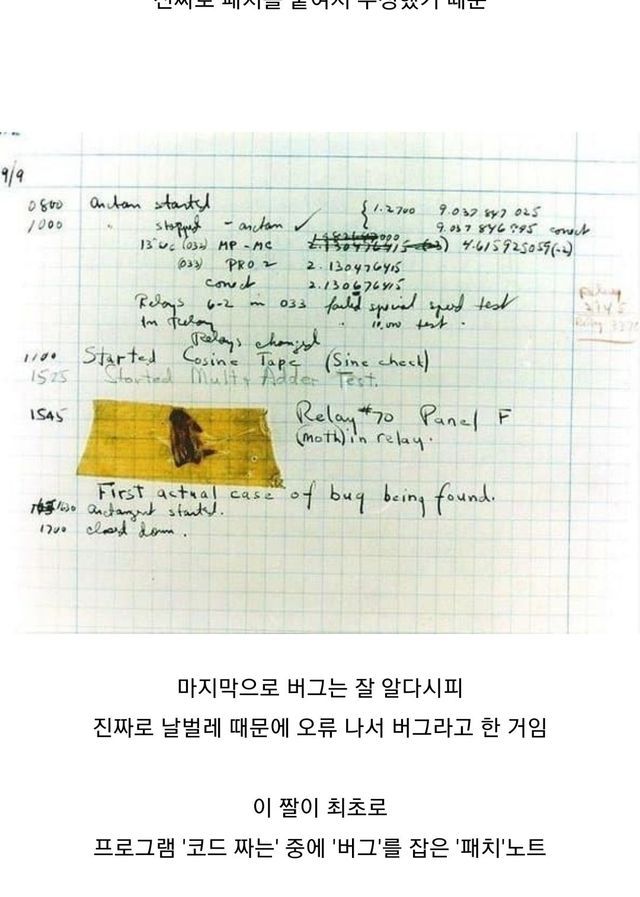 진짜로 패치를 붙여서 수정했기 때문
9/9
0800 Antan started
1000 " stopped - antan ✓ { 1.2700 9.037 847 025
9.037 846 995 correct
13" UC (032) MP - MC 2.130476415 4.615925059(-2)
(033) PRO 2 2.130476415
correct 2.130676415
Relays 6-2 in 033 failed special speed test
In Relay " 11,000 test.
Relays changed
1100 Started Cosine Tape (Sine check)
1525 Started Multi Adder Test.
1545 Relay #70 Panel F
(moth) in relay.
First actual case of bug being found.
1630 antangent started.
1700 closed down.
마지막으로 버그는 잘 알다시피
진짜로 날벌레 때문에 오류 나서 버그라고 한 거임
이 짤이 최초로
프로그램 '코드 짜는' 중에 '버그'를 잡은 '패치'노트